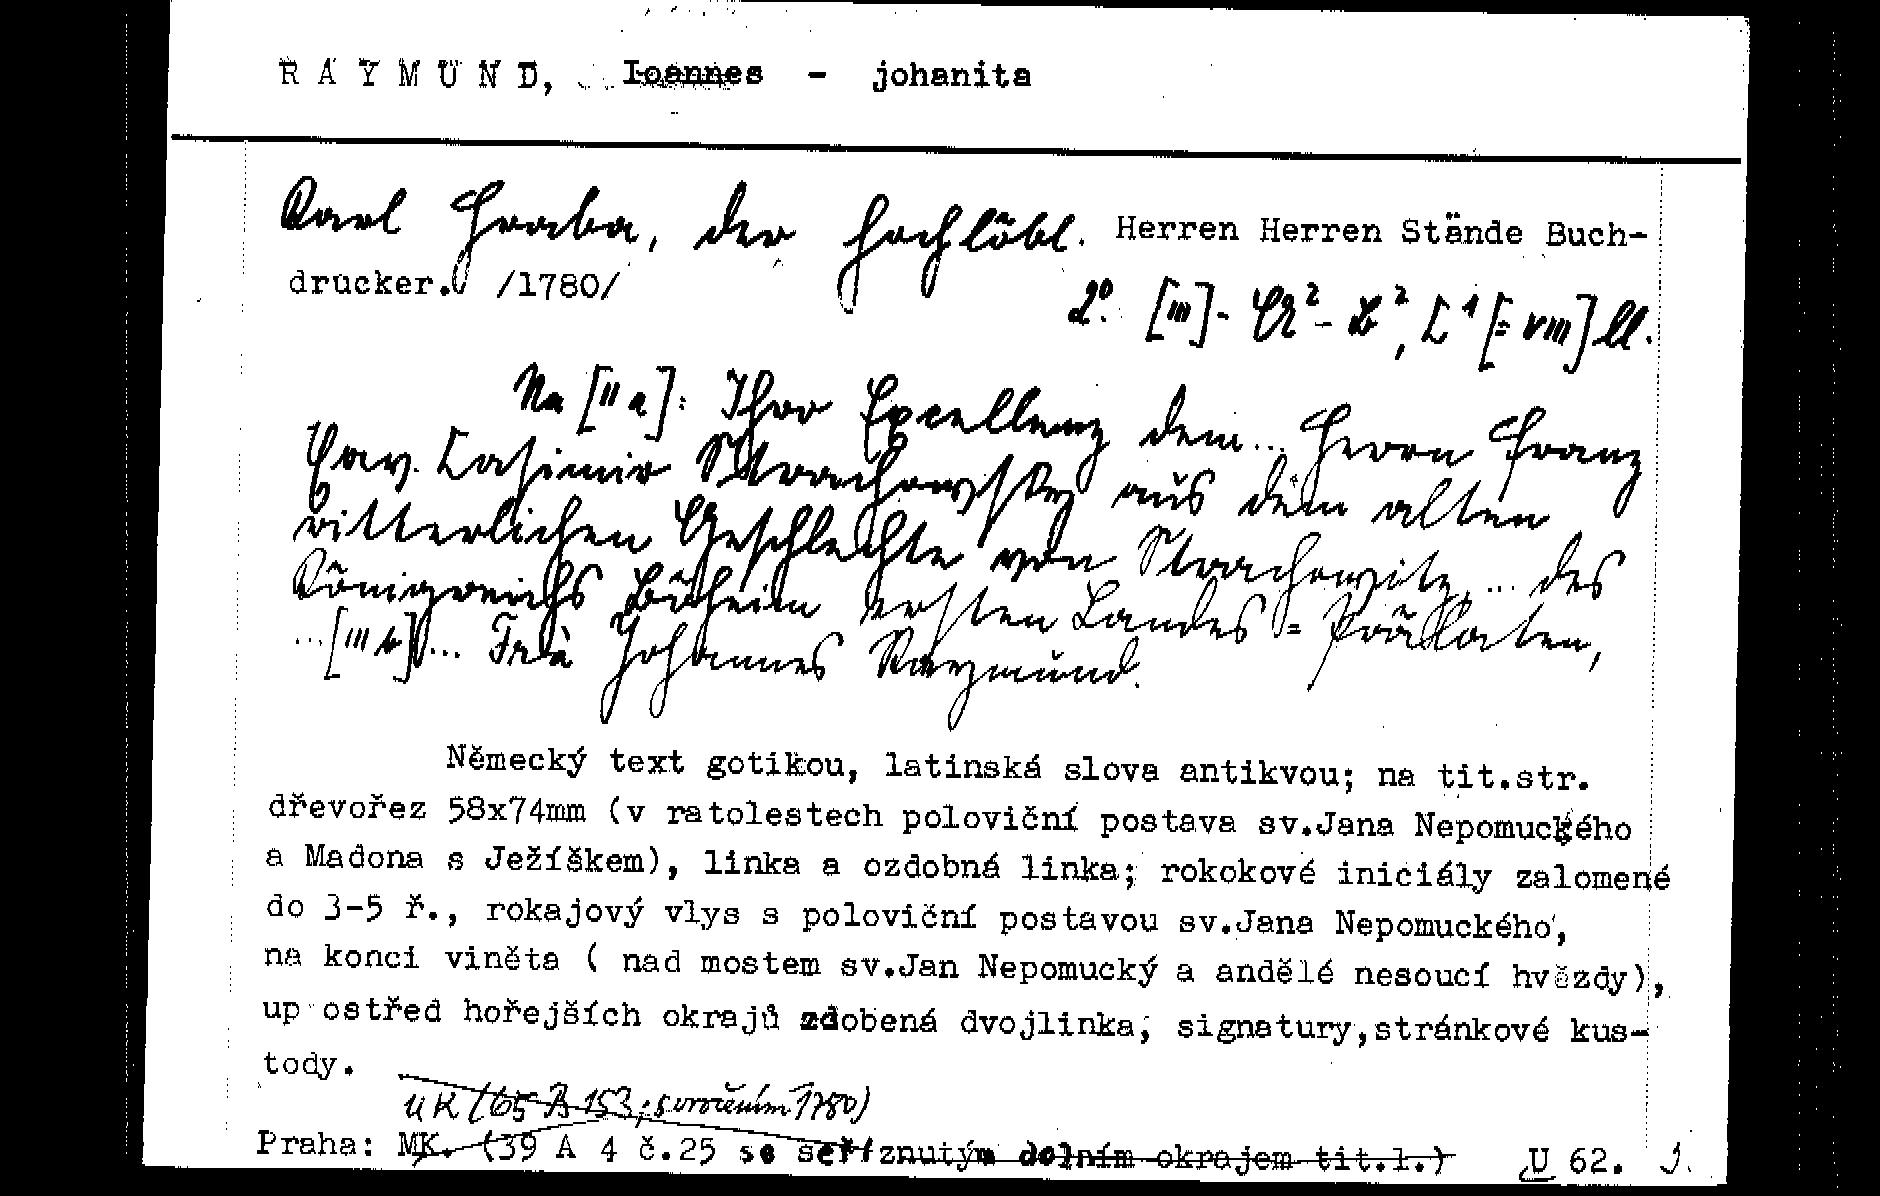 R A Y M U N D, Ioannes - johanita
Karl Hraba, der hochlöbl. Herren Herren Stände Buch-
drucker. /1780/
2°. [III]- 2 - B2, C1 [= VIII] ll.
Na [IIa]: Ihro Excellenz dem... Herrn Franz
Xav. Casimir Strachowsky aus dem alten
ritterlichen Geschlechte von Strachowitz, ... des
Königreichs Böheim ersten Landes=Prälaten,
...[IIIb]... Frà Johannes Raymund.
Německý text gotikou, latinská slova antikvou; na tit.str.
dřevořez 58x74mm (v ratolestech poloviční postava sv.Jana Nepomuckého
a Madona s Ježíškem), linka a ozdobná linka; rokokové iniciály zalomené
do 3-5 ř., rokajový vlys s poloviční postavou sv.Jana Nepomuckého,
na konci viněta ( nad mostem sv.Jan Nepomucký a andělé nesoucí hvězdy),
up ostřed hořejších okrajů zdobená dvojlinka; signatury,stránkové kus-
tody.
UK (65 A 153; s vročením 1780)
Praha: MK. (39 A 4 č.25 se seříznutým dolním okrajem tit.l.) U 62. J.